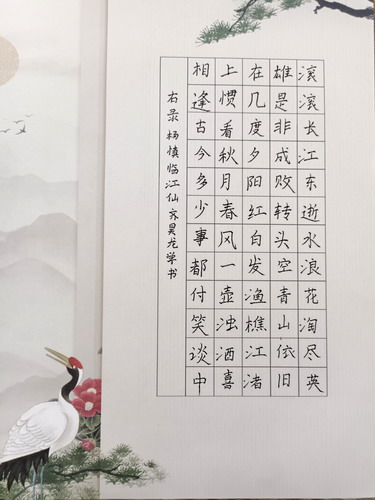 滚滚长江东逝水浪花淘尽英
雄是非成败转头空青山依旧
在几度夕阳红白发渔樵江渚
上惯看秋月春风一壶浊酒喜
相逢古今多少事都付笑谈中
右录杨慎临江仙 昊龙学书